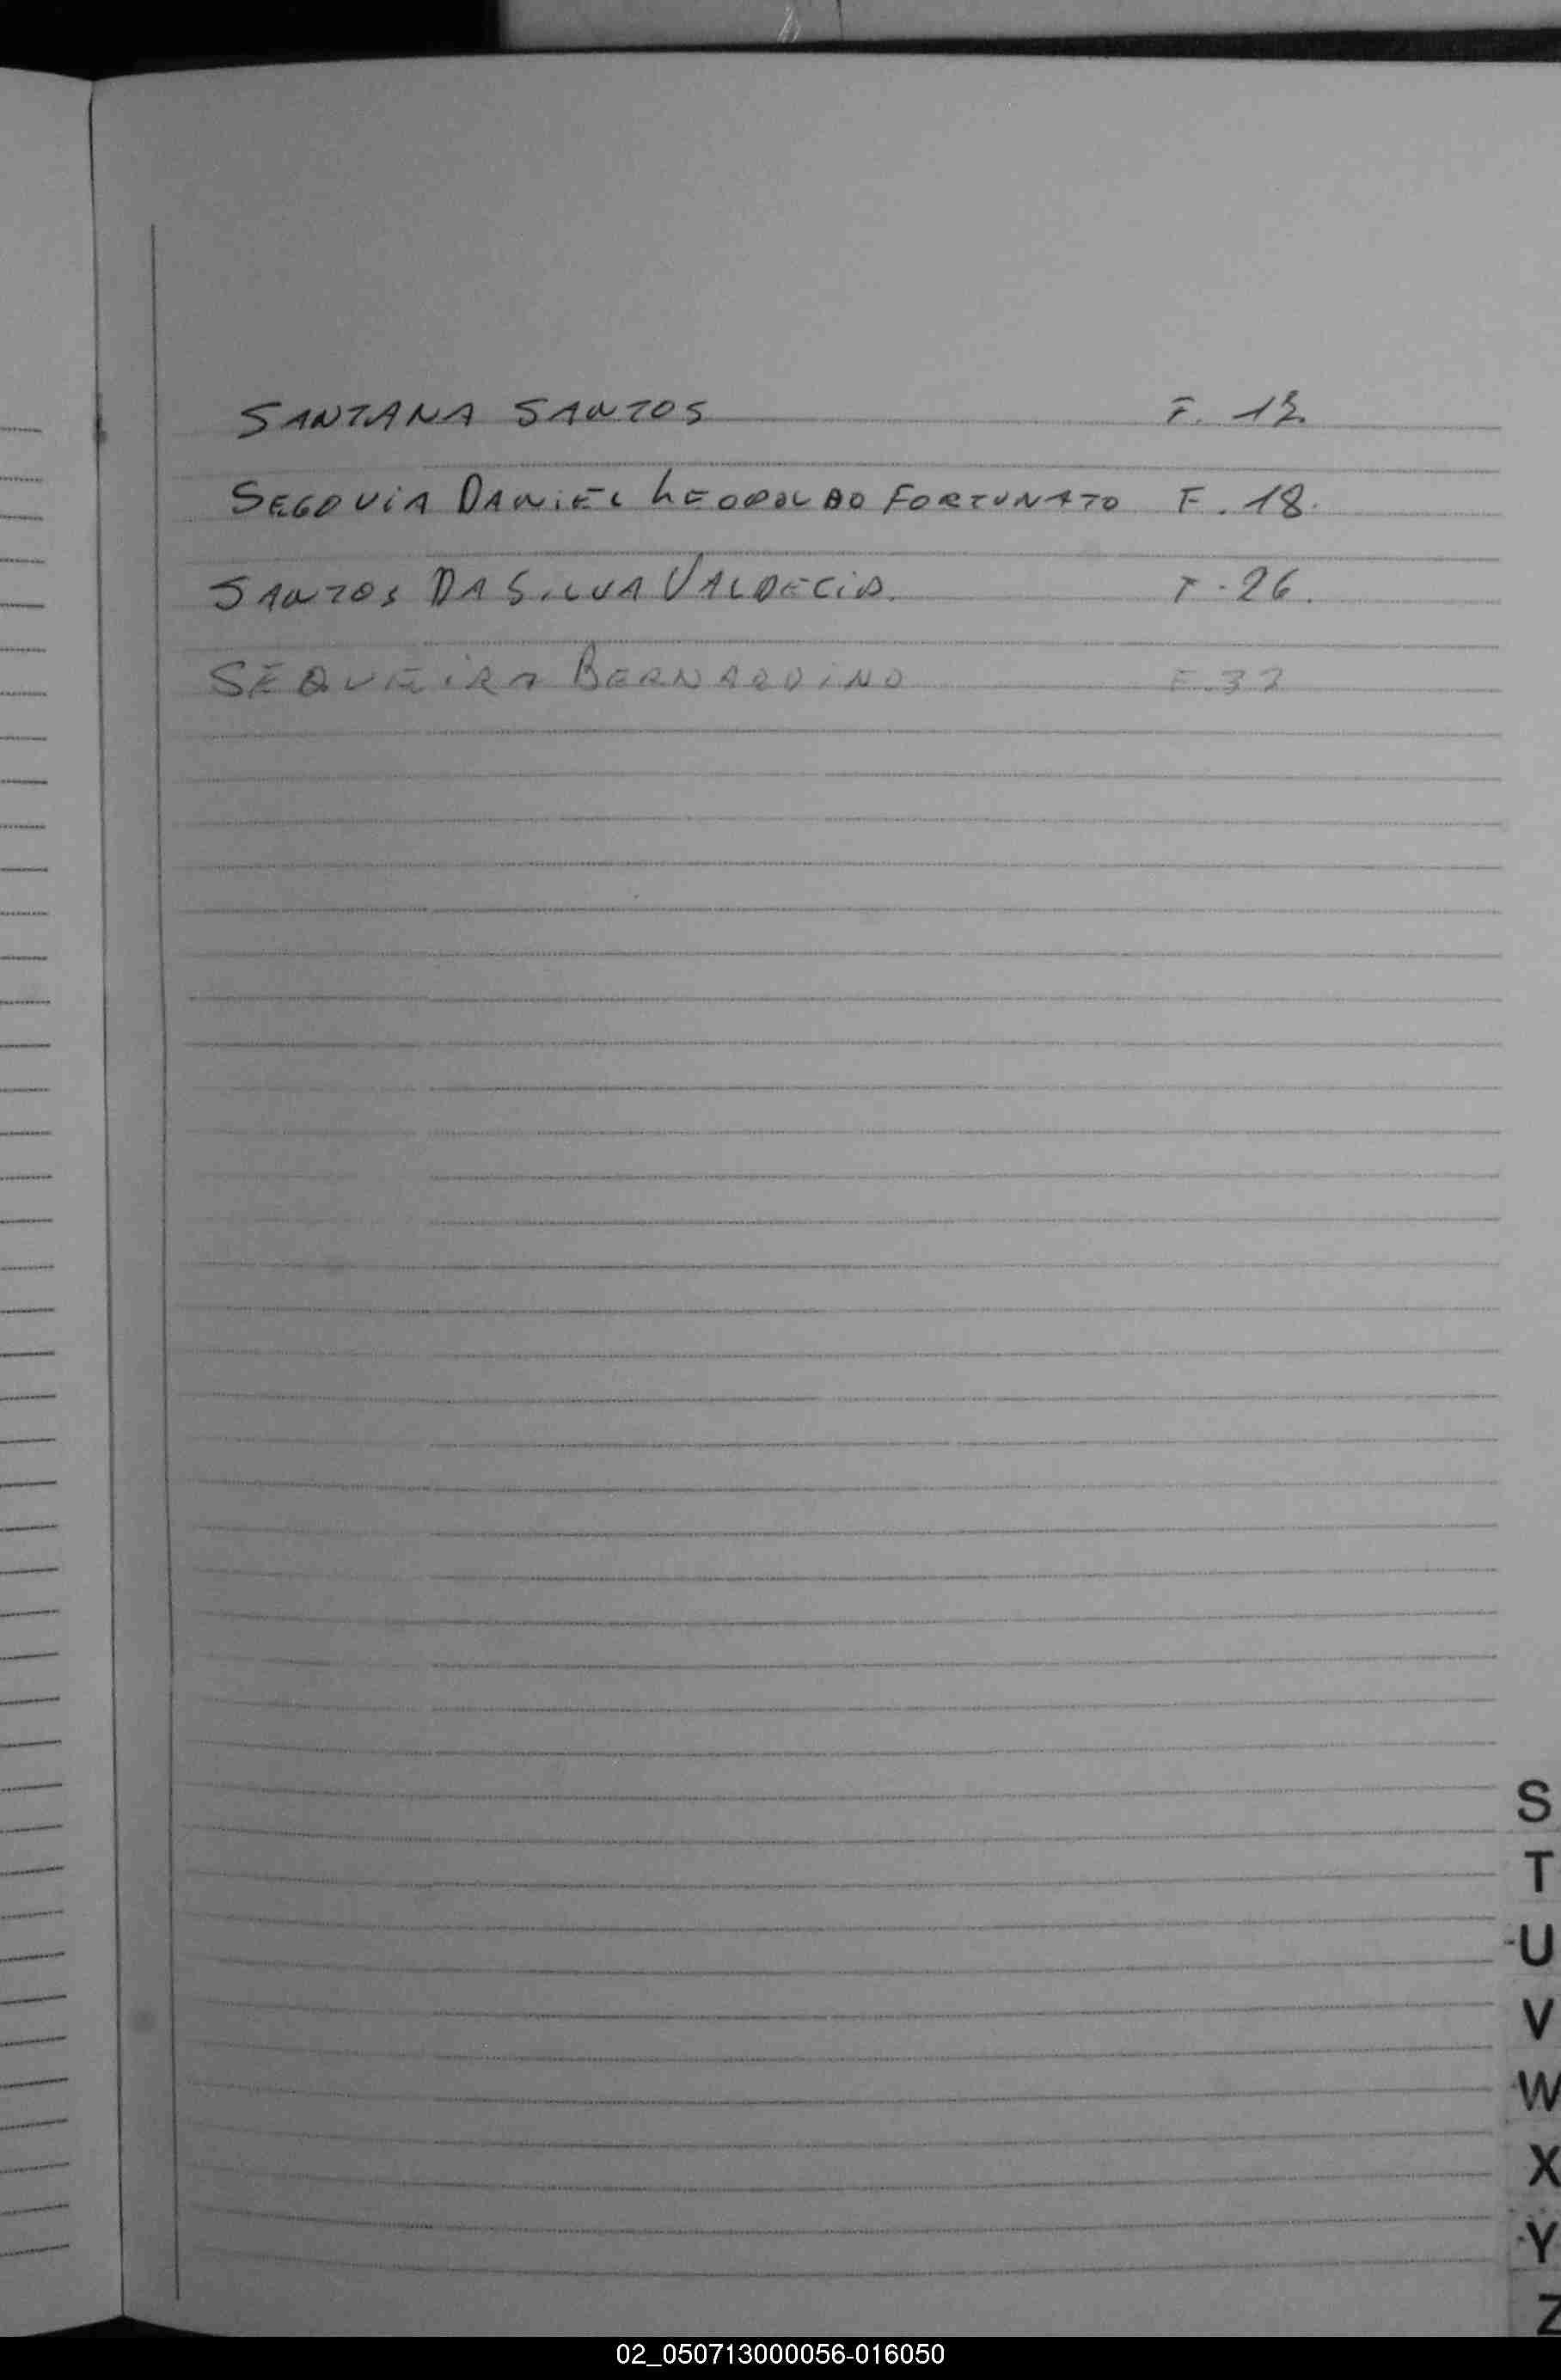 SANTANA SANTOS F. 12.
SEGOVIA DANIEL LEOPOLDO FORTUNATO F. 18.
SANTOS DA SILVA VALDECIO. F. 26.
SEQUEIRA BERNARDINO F.
S
T
U
V
W
X
Y
Z
02_050713000056-016050